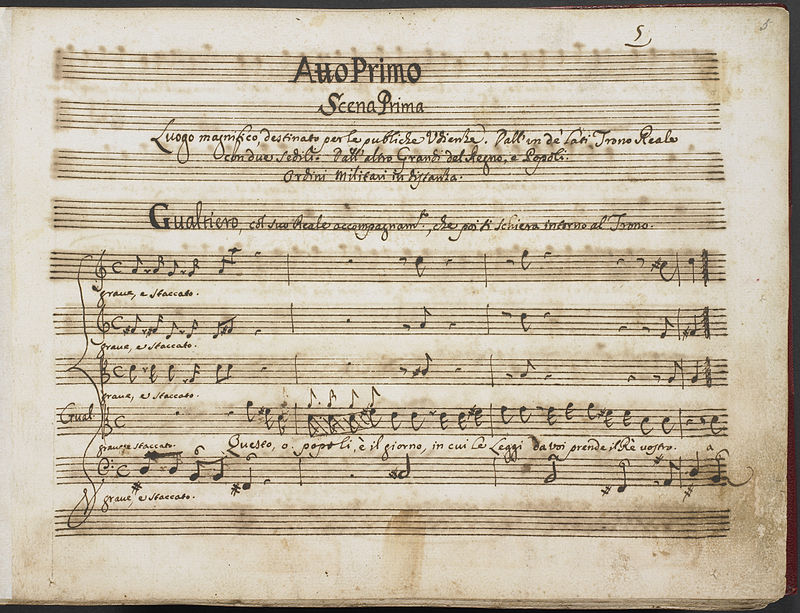 5
5
Atto Primo
Scena Prima
Luogo magnifico, destinato per le publiche Udienze. Dall' un de' lati Trono Reale
con due sedili. Dall' altro Grandi del Regno, e Popoli.
Ordini Militari in distanza.
Gualtiero, col suo Reale accompagnam.to, che poi si schiera intorno al Trono.
grave, e staccato.
grave, e staccato.
grave, e staccato.
Gual
grave e staccato.
Questo, o popoli, è il giorno, in cui le Leggi da voi prende il Rè vostro. a
grave, e staccato.